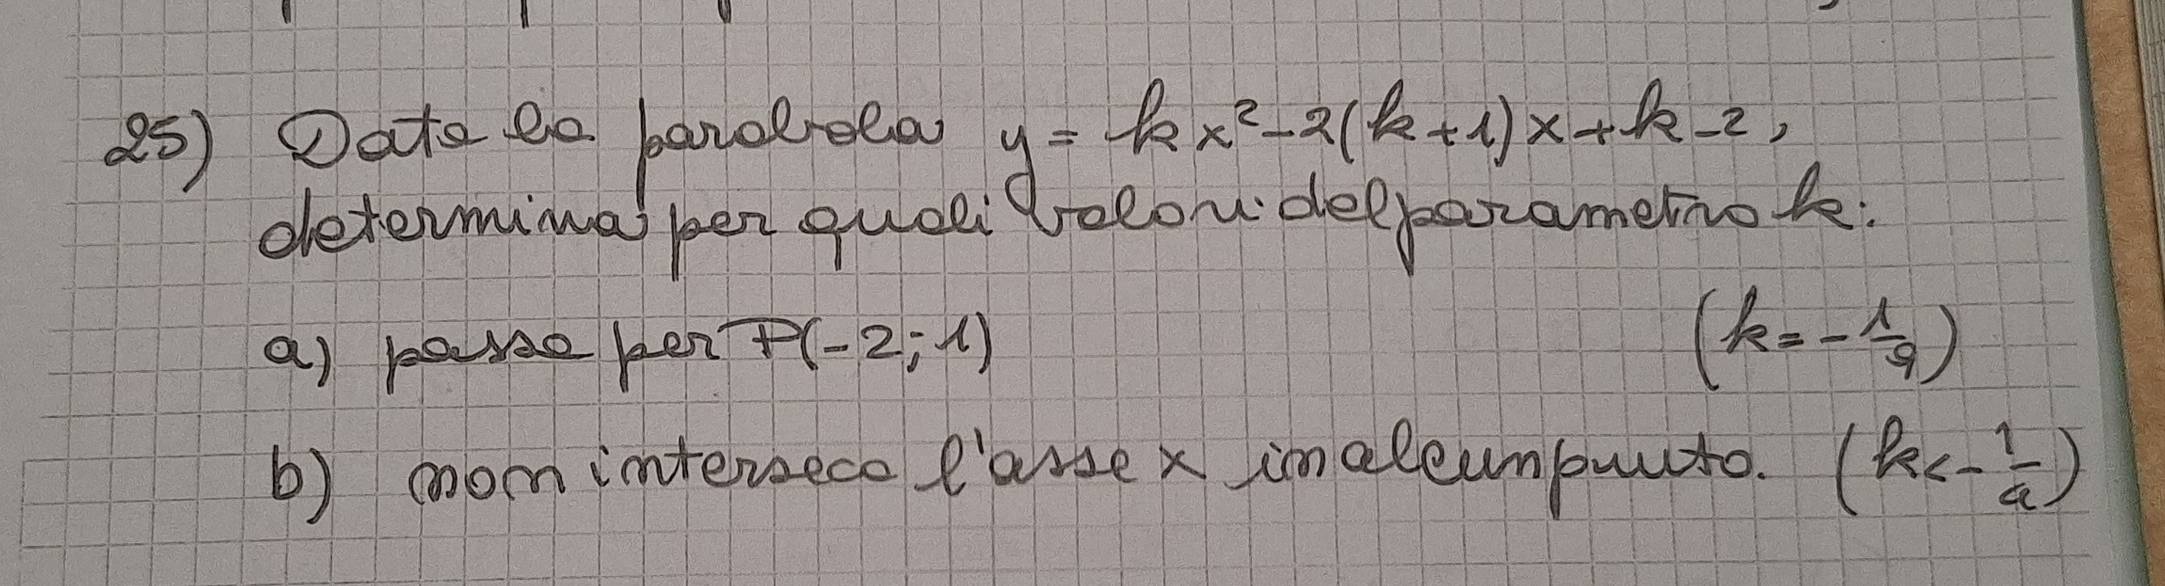 25) Data la parabola y = kx²-2(k+1)x+k-2,
determina per quali valori del parametro k:
a) passa per P(-2;1) (k=-1/9)
b) non interseca l'asse x in alcun punto. (k<-1/4)